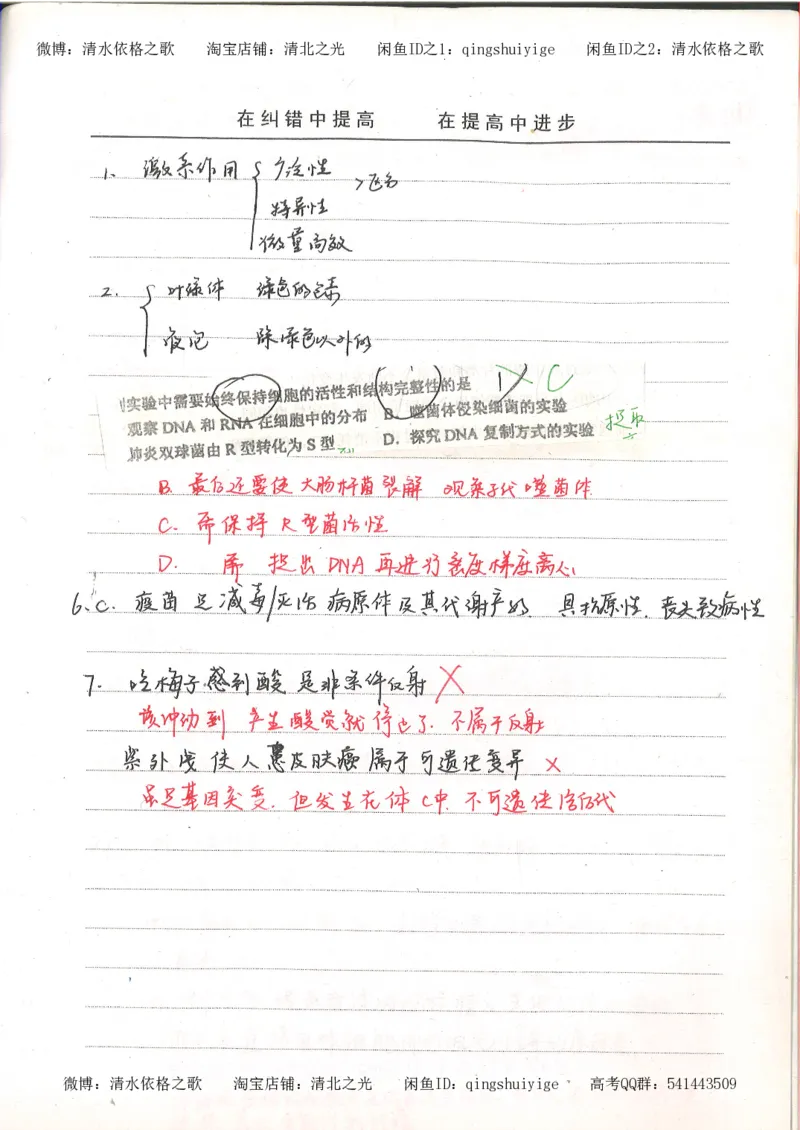 微博：清水依格之歌 淘宝店铺：清北之光 闲鱼ID之1：qingshuiyige 闲鱼ID之2：清水依格之歌
在纠错中提高 在提高中进步
1. 激素作用
特异性
微量高效
2. 叶绿体 绿色的色素
液泡 除绿色以外的
实验中需要始终保持细胞的活性和结构完整性的是 C
观察 DNA 和 RNA 在细胞中的分布 B. 噬菌体侵染细菌的实验
肺炎双球菌由 R 型转化为 S 型 D. 探究 DNA 复制方式的实验 提取
B. 最后还要使大肠杆菌裂解 观察子代噬菌体
C. 需保持 R型菌活性
D. 需 提出 DNA 再进行密度梯度离心
6. C. 疫苗是减毒/灭活病原体及其代谢产物 具抗原性. 丧失致病性
7. 吃梅子感到酸 是非条件反射 ×
该冲动到 产生酸觉就停止了. 不属于反射
紫外线使人患皮肤癌属于可遗传变异 ×
虽是基因突变. 但发生在体C中. 不可遗传给后代
微博：清水依格之歌 淘宝店铺：清北之光 闲鱼ID：qingshuiyige 高考QQ群：541443509